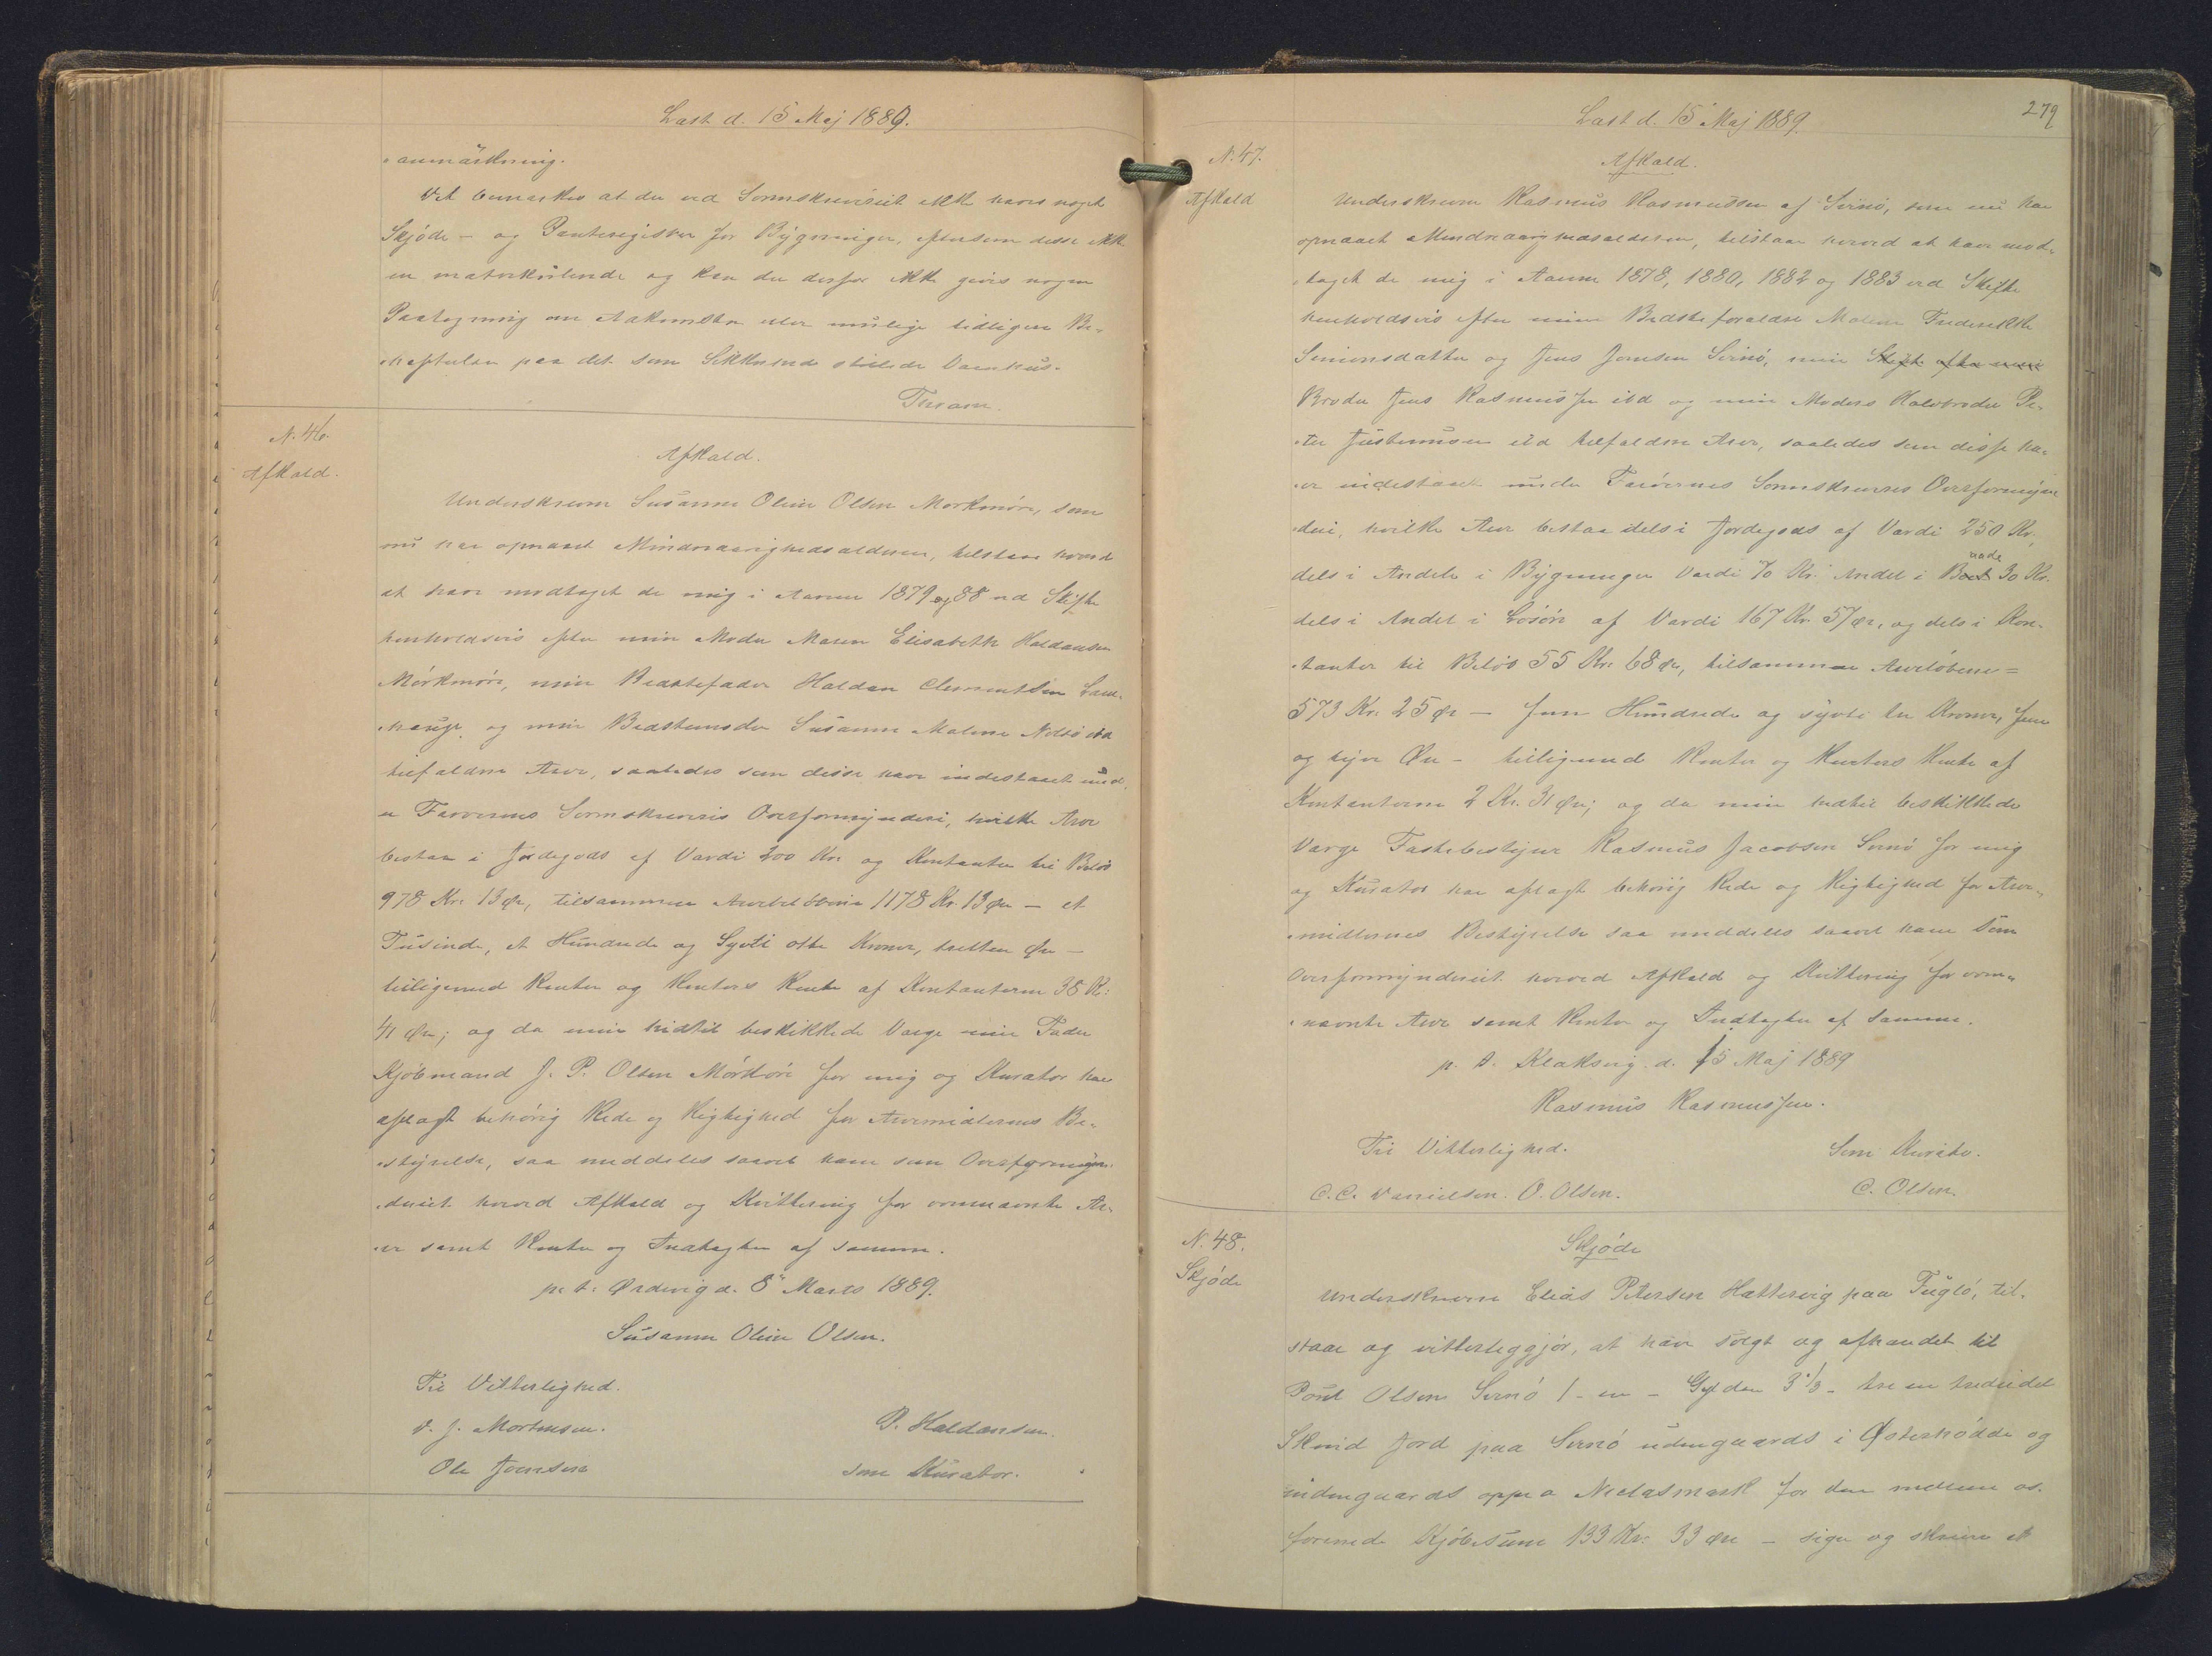 Læst d. 15 Maj 1889.
anmärkning.
Det bemærkes at der ved Sorenskriveriet ikke haves noget
Skjöde- og Panteregister for Bygninger, eftersom disse ikke
er matrikulerede og kan der derfor ikke gives nogen
Paategning om Adkomsten eller mulige tidligere Be-
hæftelser paa det som Sikkerhed stillede Vaanhus.
N. 46.
Afkald.
Afkald.
Underskrevne Susanne Oline Olsen Morkmöre, som
nu har opnaaet Mindreaarighedsalderen, tilstaar herved
at have modtaget de mig i Aarene 1879 og 88 ved Skifte
henholdsvis efter min Moder Maren Elisabeth Haldansen
Mörkmöre, min Bedstefader Haldan Clementsen Lam-
hauge og min Bedstemoder Susanne Malene Nolsö ibd
tilfaldne Arve, saaledes som disse have indestaaet und-
er Færöernes Sorenskriveris Overformynderi, hvilke Arve
bestaa i Jordegods af Værdi 200 Kr. og Kontanter til Belöb
978 Kr. 13 Øre, tilsammen Arvebelöbene 1178 Kr. 13 Øre — et
Tusinde, et Hundrede og Syvti otte Kroner, tretten Øre —
tilligemed Renter og Renters Rente af Kontanterne 38 Kr:
41 Øre; og da min hidtil beskikkede Værge min Fader
Kjöbmand J. P. Olsen Mörköre for mig og Kurator har
aflagt behörig Rede og Rigtighed for Arvemidlernes Be-
styrelse, saa meddeles saavel ham som Overformyn-
deriet herved Afkald og Kvittering for ovennævnte Ar-
ve samt Renter og Indtægter af samme.
p. t. Ørdevig d. 8 Marts 1889.
Susanne Oline Olsen.
Til Vitterlighed.
D. J. Mortensen. P. Haldansen.
Ole Joensen som Kurator.
Læst d. 15 Maj 1889.
279
N. 47.
Afkald
Afkald.
Underskrevne Rasmus Rasmussen af Svinö, som nu har
opnaaet Mindreaarighedsalderen, tilstaar herved at have mod-
taget de mig i Aarene 1878, 1880, 1882 og 1883 ved Skifte
henholdsvis efter mine Bedsteforældre Malene Frederikke
Simonsdatter og Jens Joensen Svinö, min Skifte efter min
Broder Jens Rasmussen ibd og min Moders Halvbroder Pe-
ter ibd tilfaldne Arve, saaledes som disse ha-
ve indestaaet under Færöernes Sorenskriveris Overformyn-
deri, hvilke Arve bestaa dels i Jordegods af Værdi 250 Kr.
dels i Andele i Bygninger Værdi 70 Kr. Andel i Baade 30 Kr.
dels i Andel i Lösöre af Værdi 167 Kr. 57 Øre, og dels i Kon-
tanter til Belöb 55 Kr. 68 Øre, tilsammen Arvelöbene =
573 Kr. 25 Øre — fem Hundrede og syvti tre Kroner, fem
og tyve Øre — tilligemed Renter og Renters Rente af
Kontanterne 2 Kr. 31 Øre; og da min hidtil beskikkede
Værge Fæstebestyrer Rasmus Jacobsen Svinö for mig
og Kurator har aflagt behörig Rede og Rigtighed for Arve-
midlernes Bestyrelse saa meddeles saavel ham som
Overformynderiet herved Afkald og Kvittering for oven-
nævnte Arve samt Renter og Indtægter af samme.
p. t. Klaksvig. d. 15 Maj 1889
Rasmus Rasmussen.
Til Vitterlighed. Som Kurator.
C. C. Danielsen. O. Olsen. C. Olsen.
N. 48.
Skjöde
Skjöde
Underskrevne Elias Petersen Hattervig paa Fuglö, til-
staar og vitterliggjör, at have solgt og afhændet til
Poul Olsen Svinö 1 - en - Gylden 3 1/3 - tre en trediedel
Skind Jord paa Svinö udengaards i Østerhödde og
indengaards oppe a Neclasmark for den mellem os
forenede Kjöbesum 133 Kr. 33 Øre — siger og skriver et